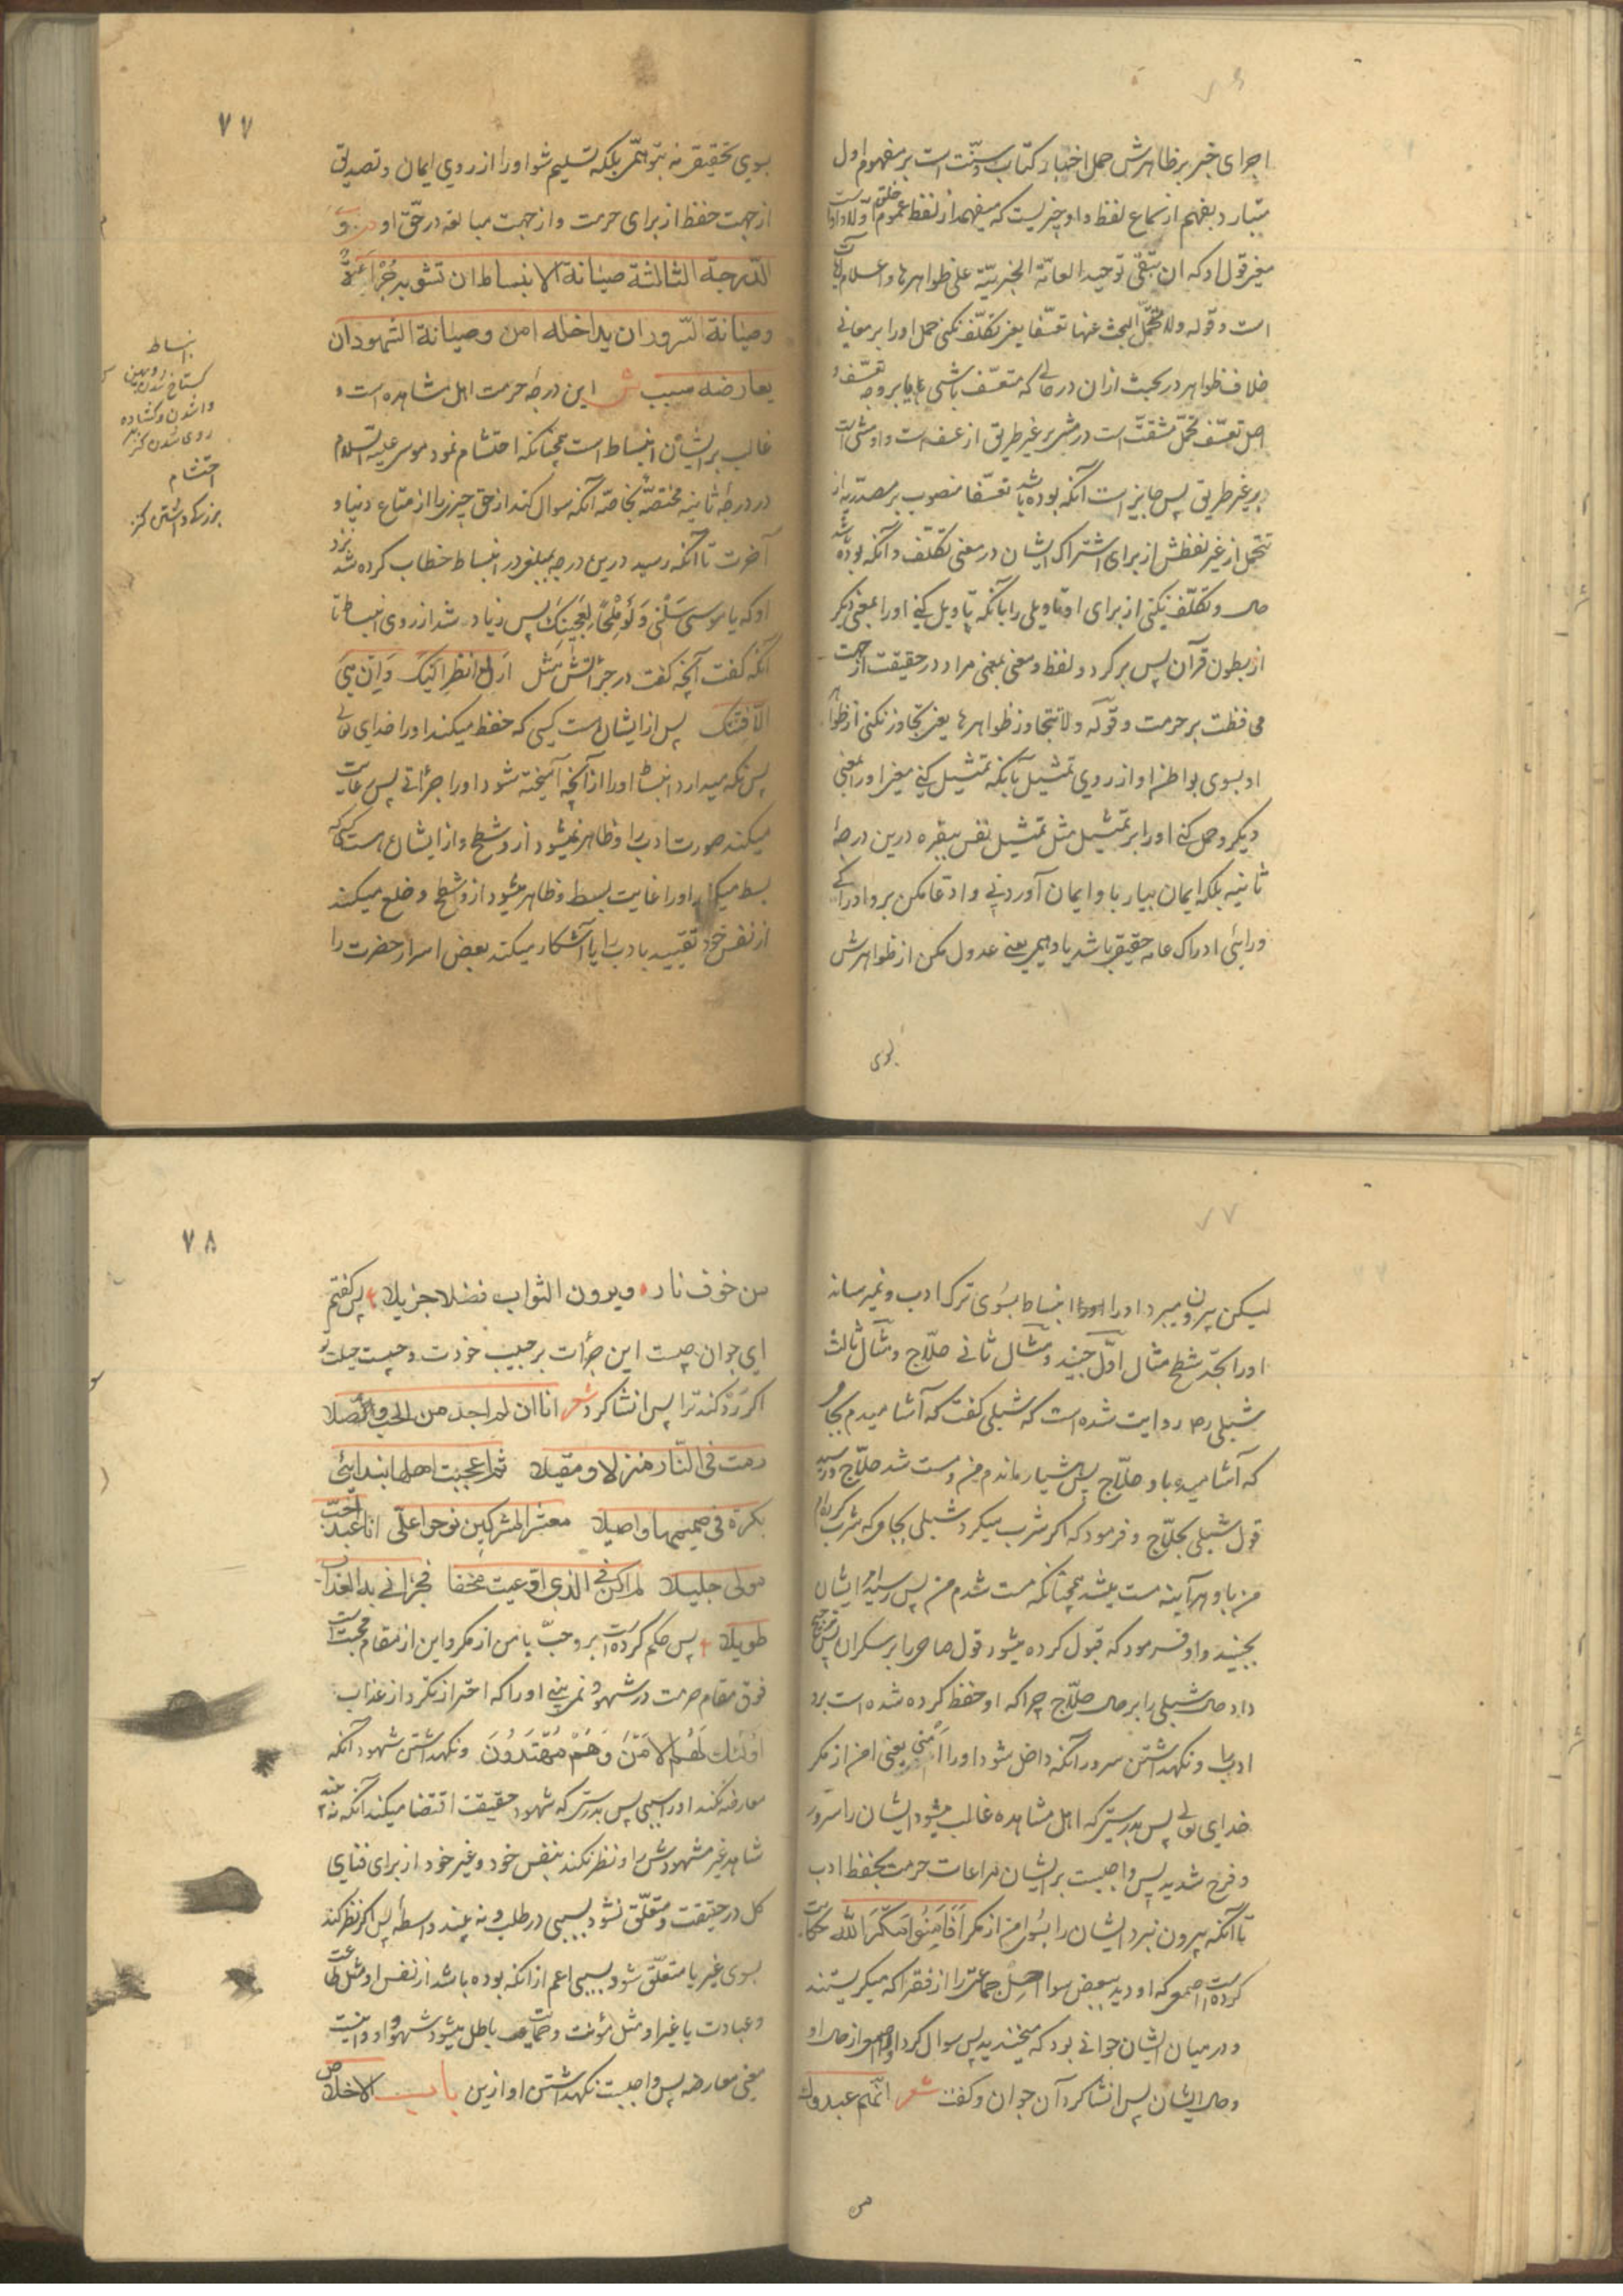 اجرای خبر بر ظاهرش حمل اخبار کتاب و سنّت است بر مفهوم اول
متبادر بفهم از سماع لفظ و او چیزیست که میفهمد از لفظ عموم خلق
قول او که ان تبقی توحید العامّة الخبریّة علی ظواهرها و اعلام
است و قوله ولا تتحمّل البحث عنها تعسّفا یعنی تکلّف نکنی حمل او را بر معانی
خلاف ظواهر در بحث ازان در حالی که متعسّف باشی
اصل تعسّف تحمّل مشقّت است در مشی بر غیر طریق از عسف است و او مشی است
بر غیر طریق پس جایز است آنکه بوده باشد تعسّفا منصوب بر مصدریه از
تتحمل از غیر لفظش از برای اشتراک ایشان در معنی تکلّف و آنکه بوده باشد
حال و تکلّف نکنی از برای او تاویلی را بآنکه تاویل کنی او را بمعنی دیگر
از بطون قرآن پس برگردد لفظ و معنی بمعنی مراد در حقیقت از جهت
محافظت بر حرمت و قوله ولا تتجاوز ظواهرها یعنی تجاوز نکنی از ظواهر
او بسوی بواطن او از روی تمثیل بآنکه تمثیل کنی او را بمعنی
دیگر و حمل کنی او را بر تمثیل مثل تمثیل نفس ببقره درین درجهٔ
ثانیه بلکه ایمان بیار باو ایمان آوردنی و ادعا مکن برو ادراکی
ورای ادراک عامه حقیقی باشد یا وهمی یعنی عدول مکن از ظواهرش
بوی
۷۷
بسوی تحقیقی نه توهّمی بلکه تسلیم شو او را از روی ایمان و تصدیق
از جهت حفظ از برای حرمت و از جهت مبالغه در حقّ او
الدّرجة الثالثة صیانة الانبساط ان تشوبه جُرأة
وصیانة السّرور ان یداخله امن وصیانة الشهود ان
یعارضه سبب ش این درجهٔ حرمت اهل مشاهده است و
غالب بر ایشان انبساط است همچنانکه احتشام نمود موسی علیه السّلام
در درجهٔ ثانیه مختصّه بخاصّه آنکه سوال کند از حق چیزی را از متاع دنیا و
آخرت تا آنکه رسید درین درجه بمبلغی در انبساط خطاب کرده شد
او که یا موسی سَلْنی وَلَو مِلْحًا لِعَجِینِکَ پس زیاد شد از روی انبساط تا
آنکه گفت آنچه گفت در جرأتش مثل ارنی انظر الیک و اِن هِیَ
الّا فِتنتک پس از ایشان است کسی که حفظ میکند او را خدای تعالی
پس نگه میدارد انبساط او را از آنچه آمیخته شود او را جرأتی پس رعایت
میکند صورت ادب را و ظاهر نمیشود ازو شطح و از ایشان هست کسی که
بسط میکند او را غایت بسط و ظاهر میشود ازو شطح و خلع میکند
از نفس خود تقیید بادب را یا آشکار میکند بعض اسرار حضرت را
انبساط
گستاخ شدن
واشدن و گشاده
روی شدن کنز
احتشام
بزرگ داشتن کنز
لیکن بیرون میبرد او را انبساط بسوی ترک ادب و نمیرساند
او را بحدّ شطح مثال اوّل جنید و مثال ثانی حلّاج و مثال ثالث
شبلی رحـ روایت شده است که شبلی گفت که آشامیدم بکاسی
که آشامید باو حلّاج پس هشیار ماندم من و مست شد حلّاج و رسید
قول شبلی بحلّاج و فرمود که اگر شرب میکرد شبلی بکاسی که شرب کردم
من باو هر آینه مست میشد همچنانکه مست شدم من پس رسید امر ایشان
بجنید و او فرمود که قبول کرده میشود قول صاحی را بر سکران پس ترجیح
داد حال شبلی را بر حال حلّاج چرا که او حفظ کرده شده است برو
ادب و نگهداشتن سرور آنکه داخل شود او را اَمْنی یعنی امن از مکر
خدای تعالی پس بدرستی که اهل مشاهده غالب میشود ایشان را سرور
و فرح شدید پس واجبست بر ایشان مراعات حرمت بحفظ ادب
تا آنکه بیرون نبرد ایشان را بسوی امن از مکر اَفَاَمِنُوا مَکْرَ اللّٰه حکایت
کرده است اصمعی که او دید ببعض سواحل جماعتی را از فقرا که میگریستند
و در میان ایشان جوانی بود که میخندید پس سوال کرد او را اصمعی از حال او
و حال ایشان پس انشا کرد آن جوان و گفت شعر انّهم عبدوک
من
۷۸
من خوف نار ویرون الثواب فضلا جزیلا پس گفتم
ای جوان چیست این جرأت بر حبیب خودت و چیست حیلت تو
اگر رد کند ترا پس انشا کرد شعر انا ان لم اجد من الحب وصلا
رمت فی النّار منزلا ومقیلا ثم اعجبت اهلها بندائی
بکرة فی ضمیمها واصیلا معشر المشرکین نوحوا علیّ انا عبد احبّ
مولی جلیلا لم اکن فی الذی ادّعیت محقا فجزانی به العذاب
طویلا پس حکم کرده است برو حبّ یا من از مکر و این از مقام محبت است
فوق مقام حرمت در شهود نمی بینی او را که احتراز نکرد از عذاب
اولٰئک لَهُمُ الاَمْنُ وَهُمْ مُهْتَدُونَ و نگهداشتن شهود آنکه
معارضه نکند او را سببی پس بدرستی که شهود حقیقت اقتضا میکند آنکه نه بیند
شاهد غیر مشهودش را و نظر نکند بنفس خود و غیر خود از برای فنای
کل در حقیقت و متعلّق نشود بسببی در طلب و نه بیند واسطه پس اگر نظر کند
بسوی غیر یا متعلّق شود بسببی اعم از آنکه بوده باشد از نفس او مثل طاعت
و عبادت یا غیر او مثل مؤنت و حمایت باطل میشود شهود او و اینست
معنی معارضه پس واجبست نگهداشتن او ازین باب الاخلاص